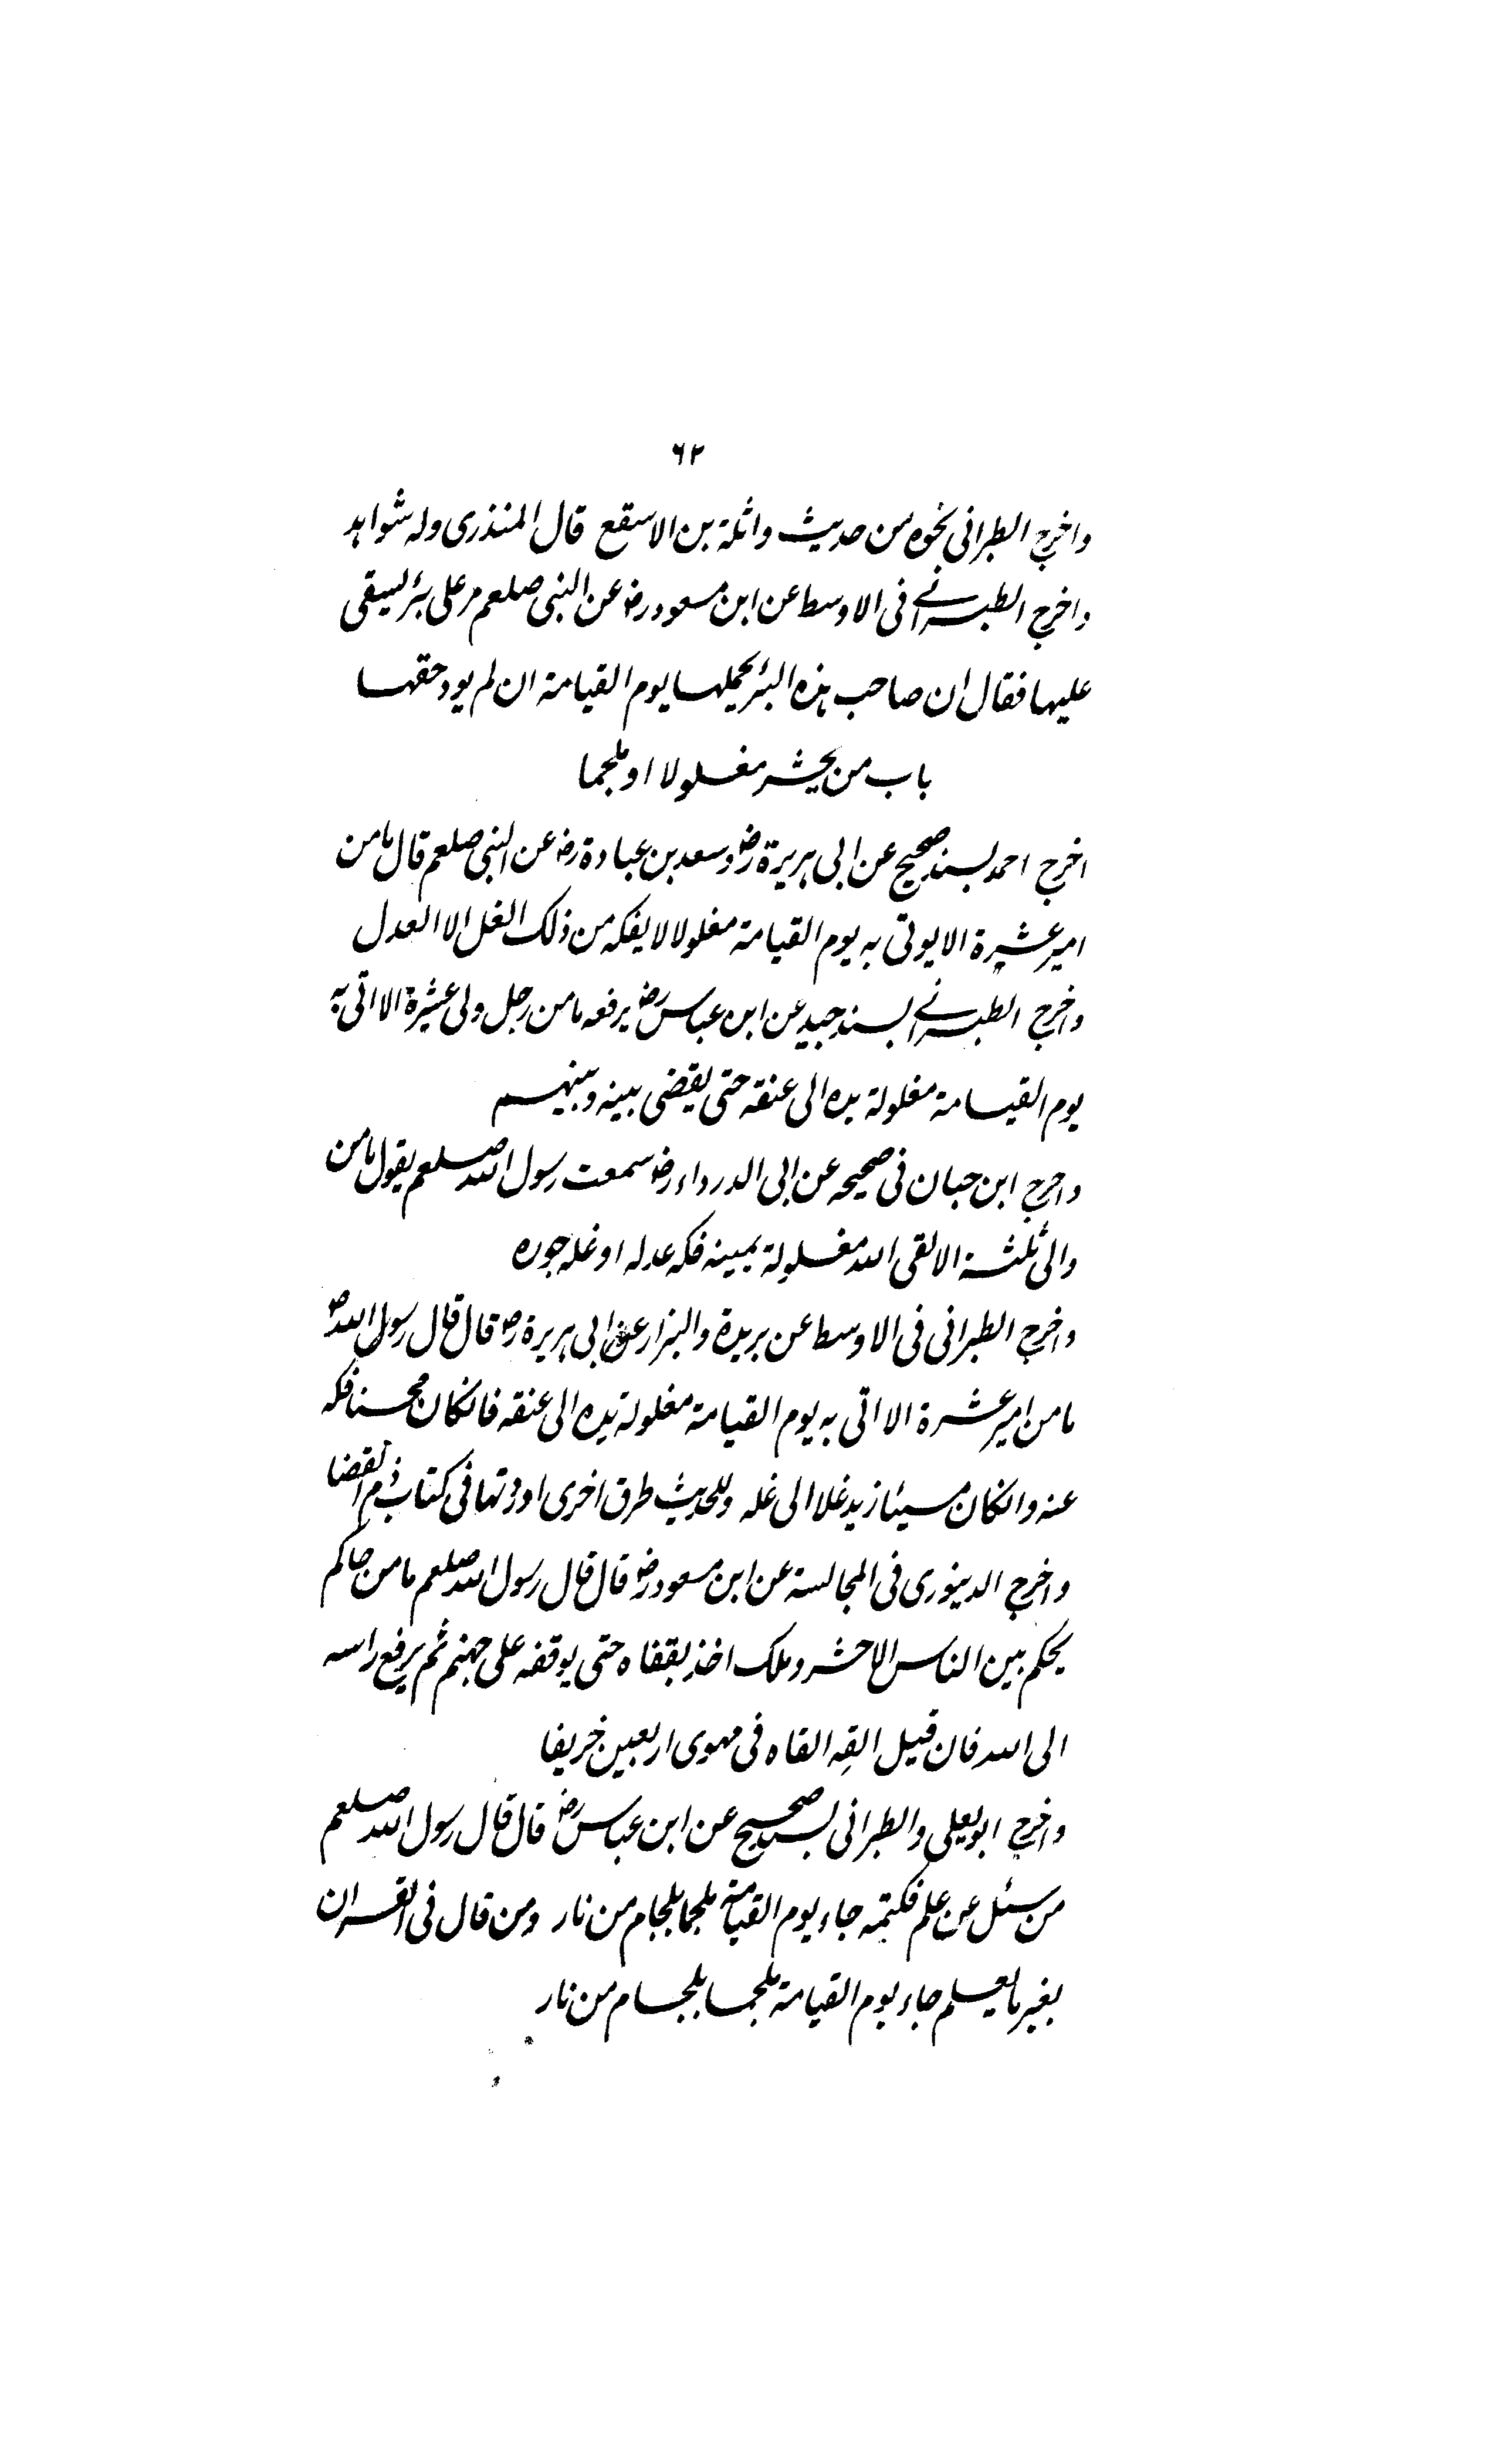 ٦٢
واخرج الطبرانى نحوه من حديث واثلة بن الاسقع قال المنذرى وله شواهد
واخرج الطبرانے فى الاوسط عن ابن مسعود رض عن النبى صلعم مر على بئر يسقى
عليها فقال ان صاحب هذه البئر يحملها يوم القيامة ان لم يود حقها
باب من يحشر مغلولا او ملجما
اخرج احمد بسند صحيح عن ابى هريرة رض وسعد بن عبادة رض عن النبى صلعم قال ما من
امير عشيرة الا يوتى به يوم القيامة مغلولا لا يفكه من ذلك الغل الا العدل
واخرج الطبرانے بسند جيد عن ابن عباس رض يرفعه ما من رجل ولى عشرة الا اتى به
يوم القيامة مغلولة يده الى عنقه حتى يقضى بينه وبينهم
واخرج ابن حبان فى صحيحه عن ابى الدرداء رض سمعت رسول الله صلعم يقول ما من
والى ثلثة الا لقى الله مغلولة يمينه فكه عدله او غله جوره
واخرج الطبرانى فى الاوسط عن بريدة والبزار عن ابى هريرة رض قال قال رسول الله ص
ما من امير عشرة الا اتى به يوم القيامة مغلولة يده الى عنقه فانكان محسنا فكه
عنه وانكان مسيئا زيد غلا الى غله وللحديث طرق اخرى اوردتها فى كتاب ذم القضا
واخرج الدينورى فى المجالسة عن ابن مسعود رض قال قال رسول الله صلعم ما من حاكم
يحكم بين الناس الا حشر وملك اخذ بقفاه حتى يوقفه على جهنم ثم يرفع راسه
الى الله فان قيل القه القاه فى مهوى اربعين خريفا
واخرج ابو يعلى والطبرانى بسند صحيح عن ابن عباس رض قال قال رسول الله صلعم
من سئل عن علم فكتمه جاء يوم القيامة ملجما بلجام من نار ومن قال فى القران
بغير ما يعلم جاء يوم القيامة ملجما بلجام من نار